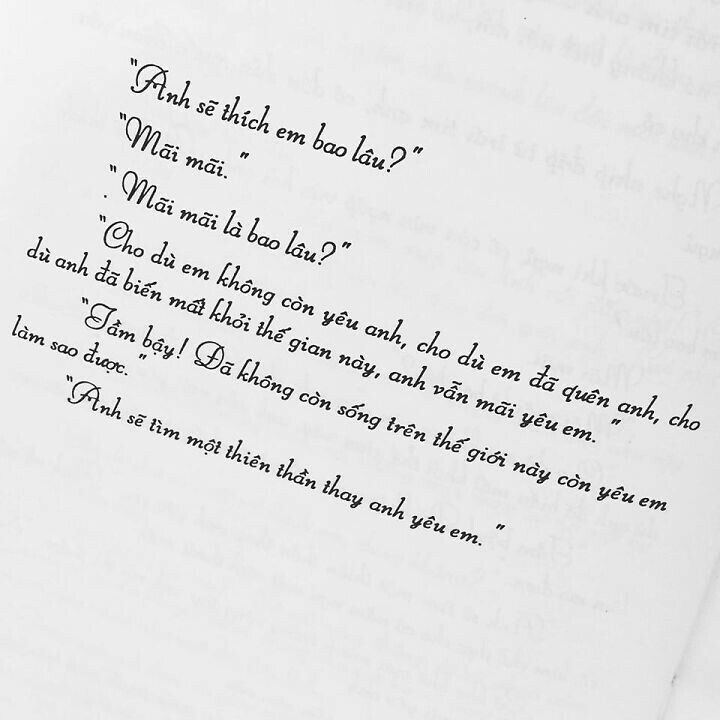 "Anh sẽ thích em bao lâu?"
"Mãi mãi."
"Mãi mãi là bao lâu?"
"Cho dù em không còn yêu anh, cho dù em đã quên anh, cho
dù anh đã biến mất khỏi thế gian này, anh vẫn mãi yêu em."
"Tầm bậy! Đã không còn sống trên thế giới này còn yêu em
làm sao được."
"Anh sẽ tìm một thiên thần thay anh yêu em."